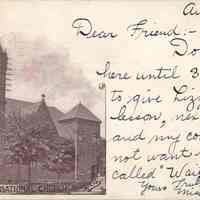 Au
Dear Friend:-
Do
here until 3
to give Lizz
lesson, nex
and my co
not want
called "Wai
Yours Trul
Miss
NATIONAL CHURCH